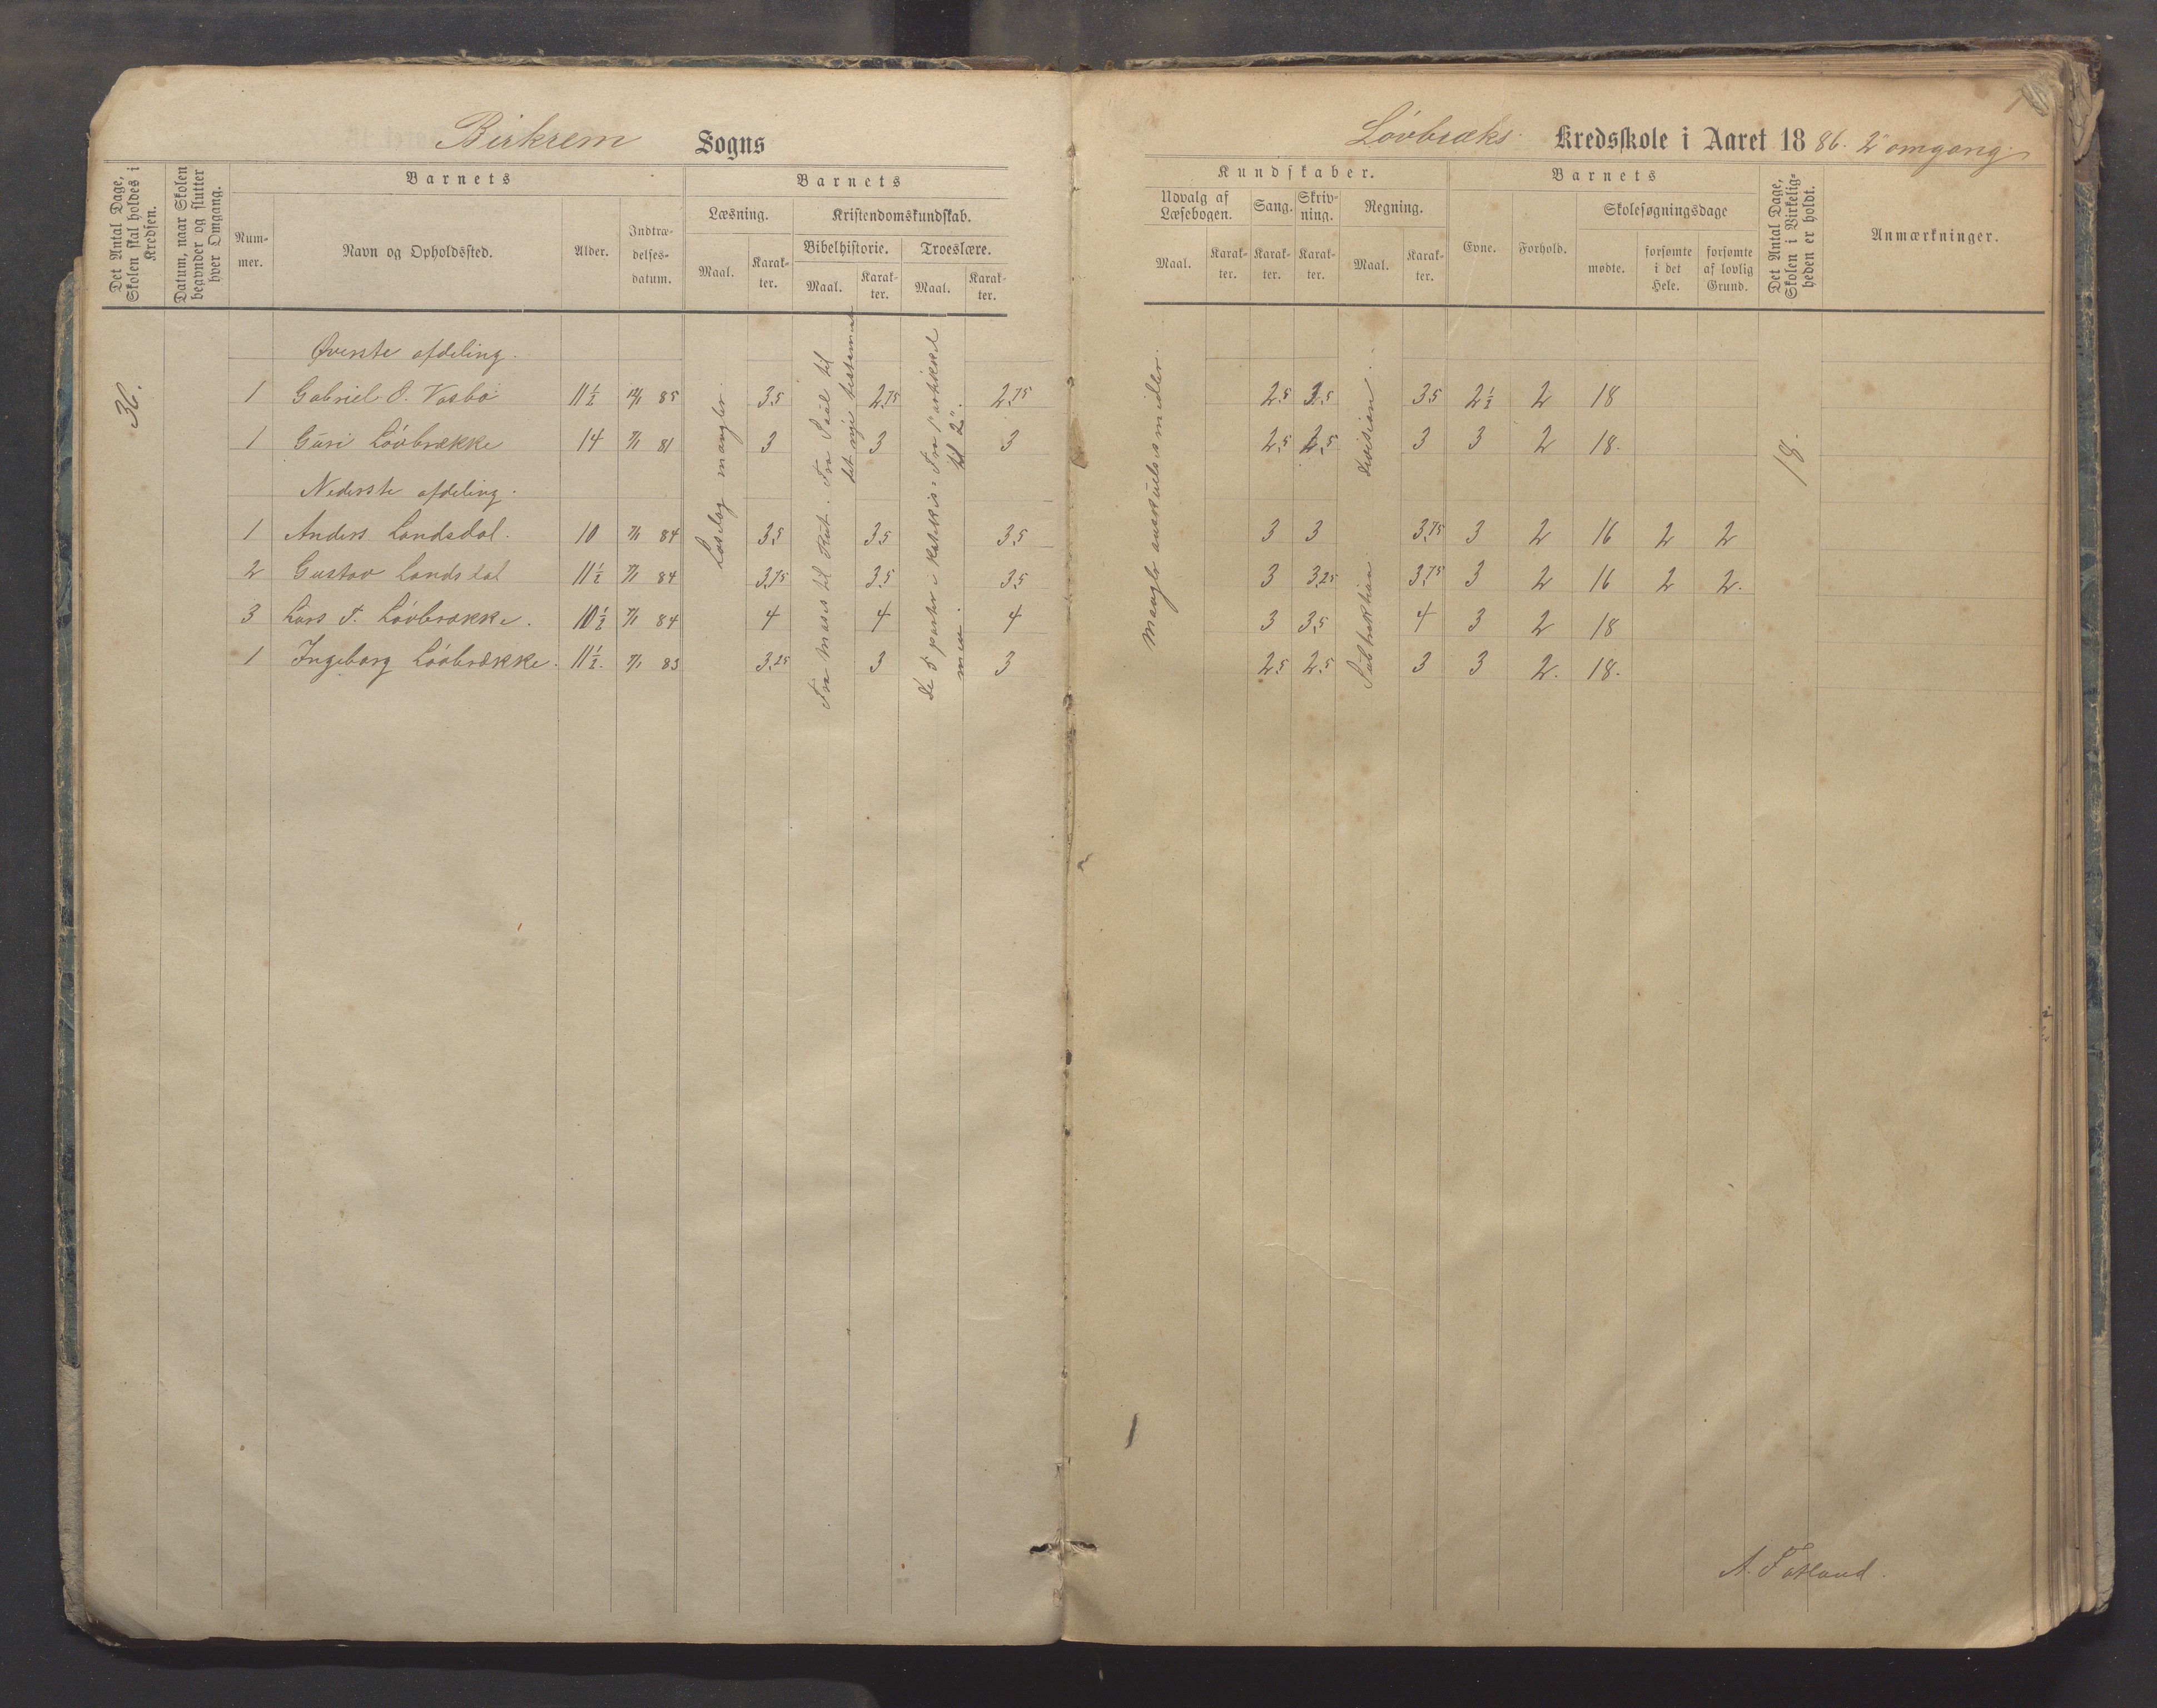 Birkrem Sogns
Det Antal Dage, Skolen skal holdes i Kredsen.
Datum, naar Skolen begynder og slutter hver Omgang.
Barnets
Nummer.
Navn og Opholdssted.
Alder.
Indtrædelsesdatum.
Barnets
Læsning.
Maal.
Karakter.
Kristendomskundskab.
Bibelhistorie.
Maal.
Karakter.
Troeslære.
Maal.
Karakter.
36.
Øverste afdeling.
1 Gabriel O. Vasbø 11½ 85 3,5 2,75 2,75
1 Guri Lövbrække 14 7/1 81 3 3 3
Nederste afdeling.
1 Anders Landsdal. 10 7/1 84 3,5 3,5 3,5
2 Gustav Landsdal 11½ 7/1 84 3,75 3,5 3,5
3 Lars T. Lövbrække. 10½ 7/1 84 4 4 4
1 Ingeborg Lövbrække. 11½. 7/1 83 3,25 3 3
Læsebog mangler.
Fra Moses til Rut. Fra Saul til
det nye testamente
De 5 parter i Katekis= Fra 1ste artikkel
men. til 2".
Lövbræks Kredsskole i Aaret 1886. 2" omgang.
Kundskaber.
Udvalg af Læsebogen.
Maal.
Karakter.
Sang.
Karakter.
Skrivning.
Karakter.
Regning.
Maal.
Karakter.
Barnets
Evne.
Forhold.
Skolesøgningsdage
mødte.
forsømte i det Hele.
forsømte af lovlig Grund.
Det Antal Dage, Skolen i Virkeligheden er holdt.
Anmærkninger.
Mangler anskuelsesmidler.
Division.
Subtraktion
2,5 2,5 3,5 2½ 2 18
2,5 2,5 3 3 2 18.
3 3 3,75 3 2 16 2 2
3 3,25 3,75 3 2 16 2 2.
3 3,5 4 3 2 18
2,5 2,5 3 3 2. 18.
18.
A. Fotland.